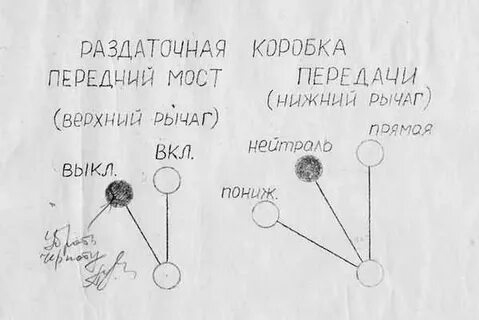 РАЗДАТОЧНАЯ КОРОБКА
ПЕРЕДНИЙ МОСТ
(ВЕРХНИЙ РЫЧАГ)
ВЫКЛ.
ВКЛ.
Убрать
черноту
ПЕРЕДАЧИ
(НИЖНИЙ РЫЧАГ)
нейтраль
прямая
пониж.